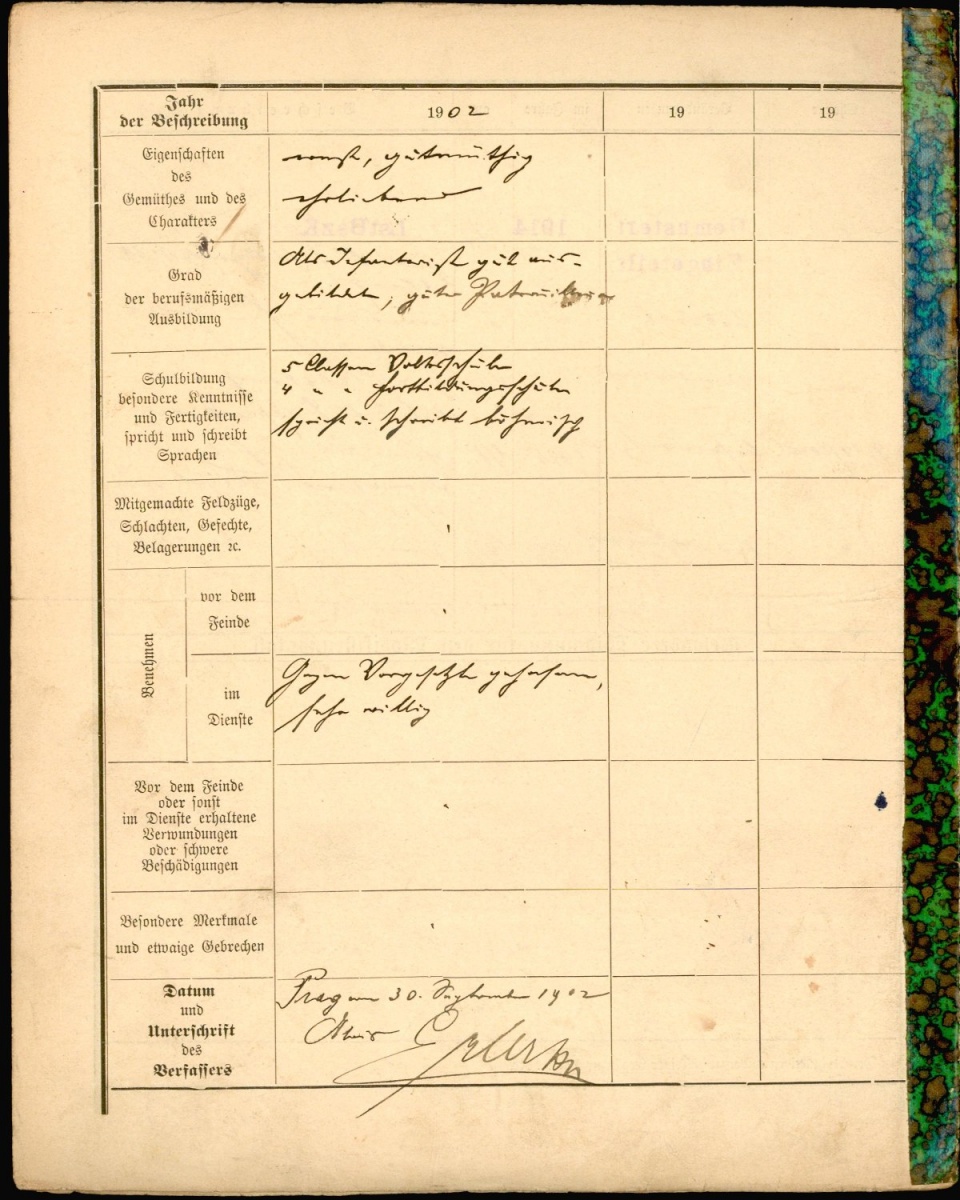 Jahr
der Beschreibung
1902
19
19
Eigenschaften
des
Gemüthes und des
Charakters
ernst, gutmüthig
ehrliebend
Grad
der berufsmäßigen
Ausbildung
Als Infanterist gut aus-
gebildet, guter
Schulbildung
besondere Kenntnisse
und Fertigkeiten,
spricht und schreibt
Sprachen
5 Classen Volksschule
4 " " Fortbildungsschule
spricht u. schreibt böhmisch
Mitgemachte Feldzüge,
Schlachten, Gefechte,
Belagerungen ꝛc.
Benehmen
vor dem
Feinde
im
Dienste
Gegen Vorgesetzte gehorsam,
sehr willig
Vor dem Feinde
oder sonst
im Dienste erhaltene
Verwundungen
oder schwere
Beschädigungen
Besondere Merkmale
und etwaige Gebrechen
Datum
und
Unterschrift
des
Verfassers
Prag am 30. September 1902
1914